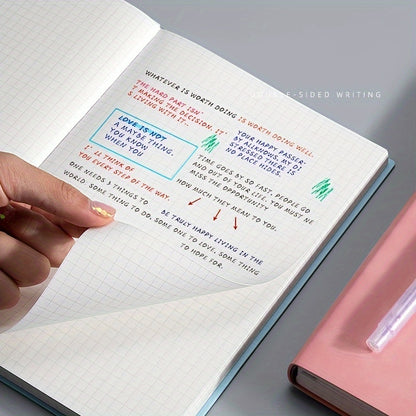 DOUBLE-SIDED WRITING
WHATEVER IS WORTH DOING IS WORTH DOING WELL.
THE HARD PART ISN'
T MAKING THE DECISION. IT'
S LIVING WITH IT.
YOUR HAPPY PASSER-
BY ALLKNOWS. MY DI
STRESSED THERE IS
NO PLACE HIDES.
LOVE IS NOT
A MAYBE THING.
YOU KNOW
WHEN YOU
TIME GOES BY SO FAST. PEOPLE GO
AND OUT OF YOUR LIFE. YOU MUST NE
MISS THE OPPORTUNITY
HOW MUCH THEY MEAN TO YOU.
I' LL THINK OF
YOU EVERY STEP OF THE WAY.
ONE NEEDS 3 THINGS TO BE TRULY HAPPY LIVING IN THE
WORLD: SOME THING TO DO, SOME ONE TO LOVE, SOME THING
TO HOPE FOR.